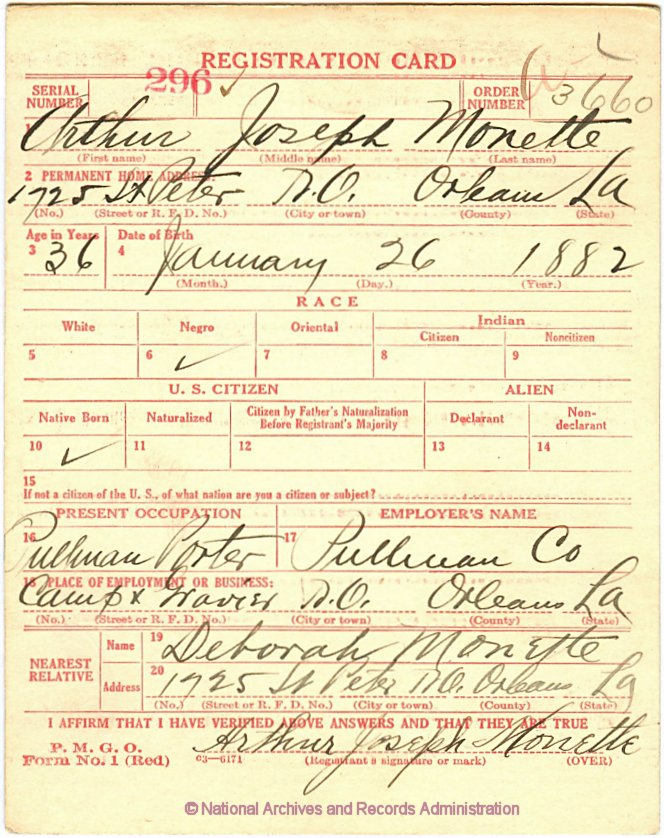 REGISTRATION CARD
SERIAL NUMBER 296 ORDER NUMBER 3660
1 Arthur Joseph Monette
(First name) (Middle name) (Last name)
2 PERMANENT HOME ADDRESS:
1725 St Peter N.O. Orleans La
(No.) (Street or R. F. D. No.) (City or town) (County) (State)
Age in Years Date of Birth
3 36 4 January 26 1882
(Month.) (Day.) (Year.)
RACE
White Negro Oriental Indian
Citizen Noncitizen
5 6 ✓ 7 8 9
U. S. CITIZEN ALIEN
Native Born Naturalized Citizen by Father's Naturalization Before Registrant's Majority Declarant Non-declarant
10 ✓ 11 12 13 14
15
If not a citizen of the U. S., of what nation are you a citizen or subject?
PRESENT OCCUPATION EMPLOYER'S NAME
16 Pullman Porter 17 Pullman Co
18 PLACE OF EMPLOYMENT OR BUSINESS:
Camp & Gravier N.O. Orleans La
(No.) (Street or R. F. D. No.) (City or town) (County) (State)
NEAREST RELATIVE
Name 19 Deborah Monette
Address 20 1725 St Peter N.O. Orleans La
(No.) (Street or R. F. D. No.) (City or town) (County) (State)
I AFFIRM THAT I HAVE VERIFIED ABOVE ANSWERS AND THAT THEY ARE TRUE
P. M. G. O.
Form No. 1 (Red) C3—6171 Arthur Joseph Monette
(Registrant's signature or mark) (OVER)
© National Archives and Records Administration